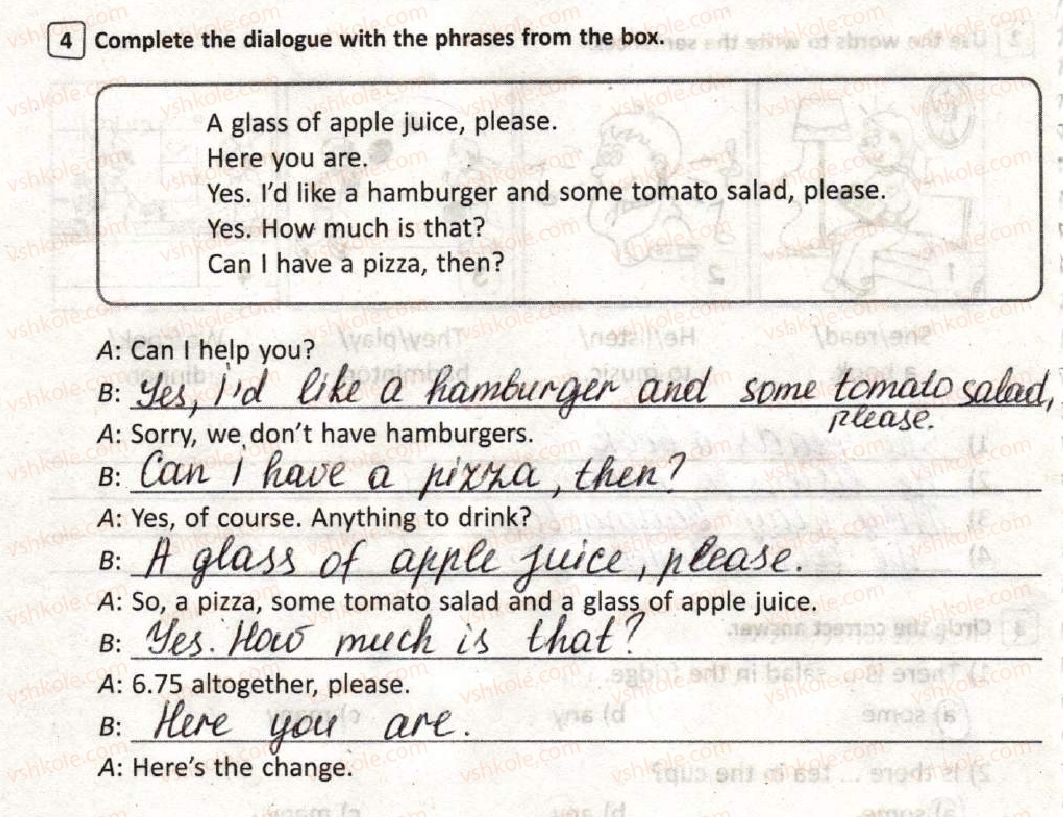 4 Complete the dialogue with the phrases from the box.
A glass of apple juice, please.
Here you are.
Yes. I'd like a hamburger and some tomato salad, please.
Yes. How much is that?
Can I have a pizza, then?
A: Can I help you?
B: Yes, I'd like a hamburger and some tomato salad,
please.
A: Sorry, we don't have hamburgers.
B: Can I have a pizza, then?
A: Yes, of course. Anything to drink?
B: A glass of apple juice, please.
A: So, a pizza, some tomato salad and a glass of apple juice.
B: Yes. How much is that?
A: 6.75 altogether, please.
B: Here you are.
A: Here's the change.
vshkole.com